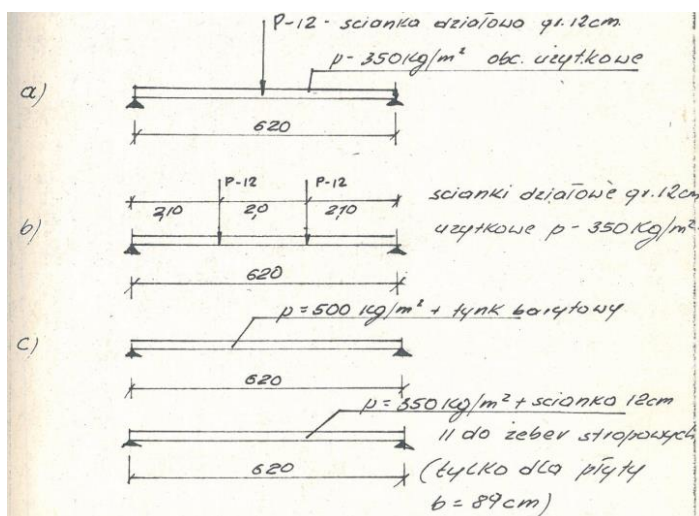 P-12 - scianka działowa gr. 12cm.
p- 350kg/m² obc. użytkowe
a)
620
P-12 P-12
scianki działowe gr. 12cm
2,10 2,0 2,10
użytkowe p- 350kg/m².
b)
620
p=500 kg/m² + tynk barytowy
c)
620
p=350kg/m² + scianka 12cm
II do żeber stropowych
620
(tylko dla płyty
b = 89cm)